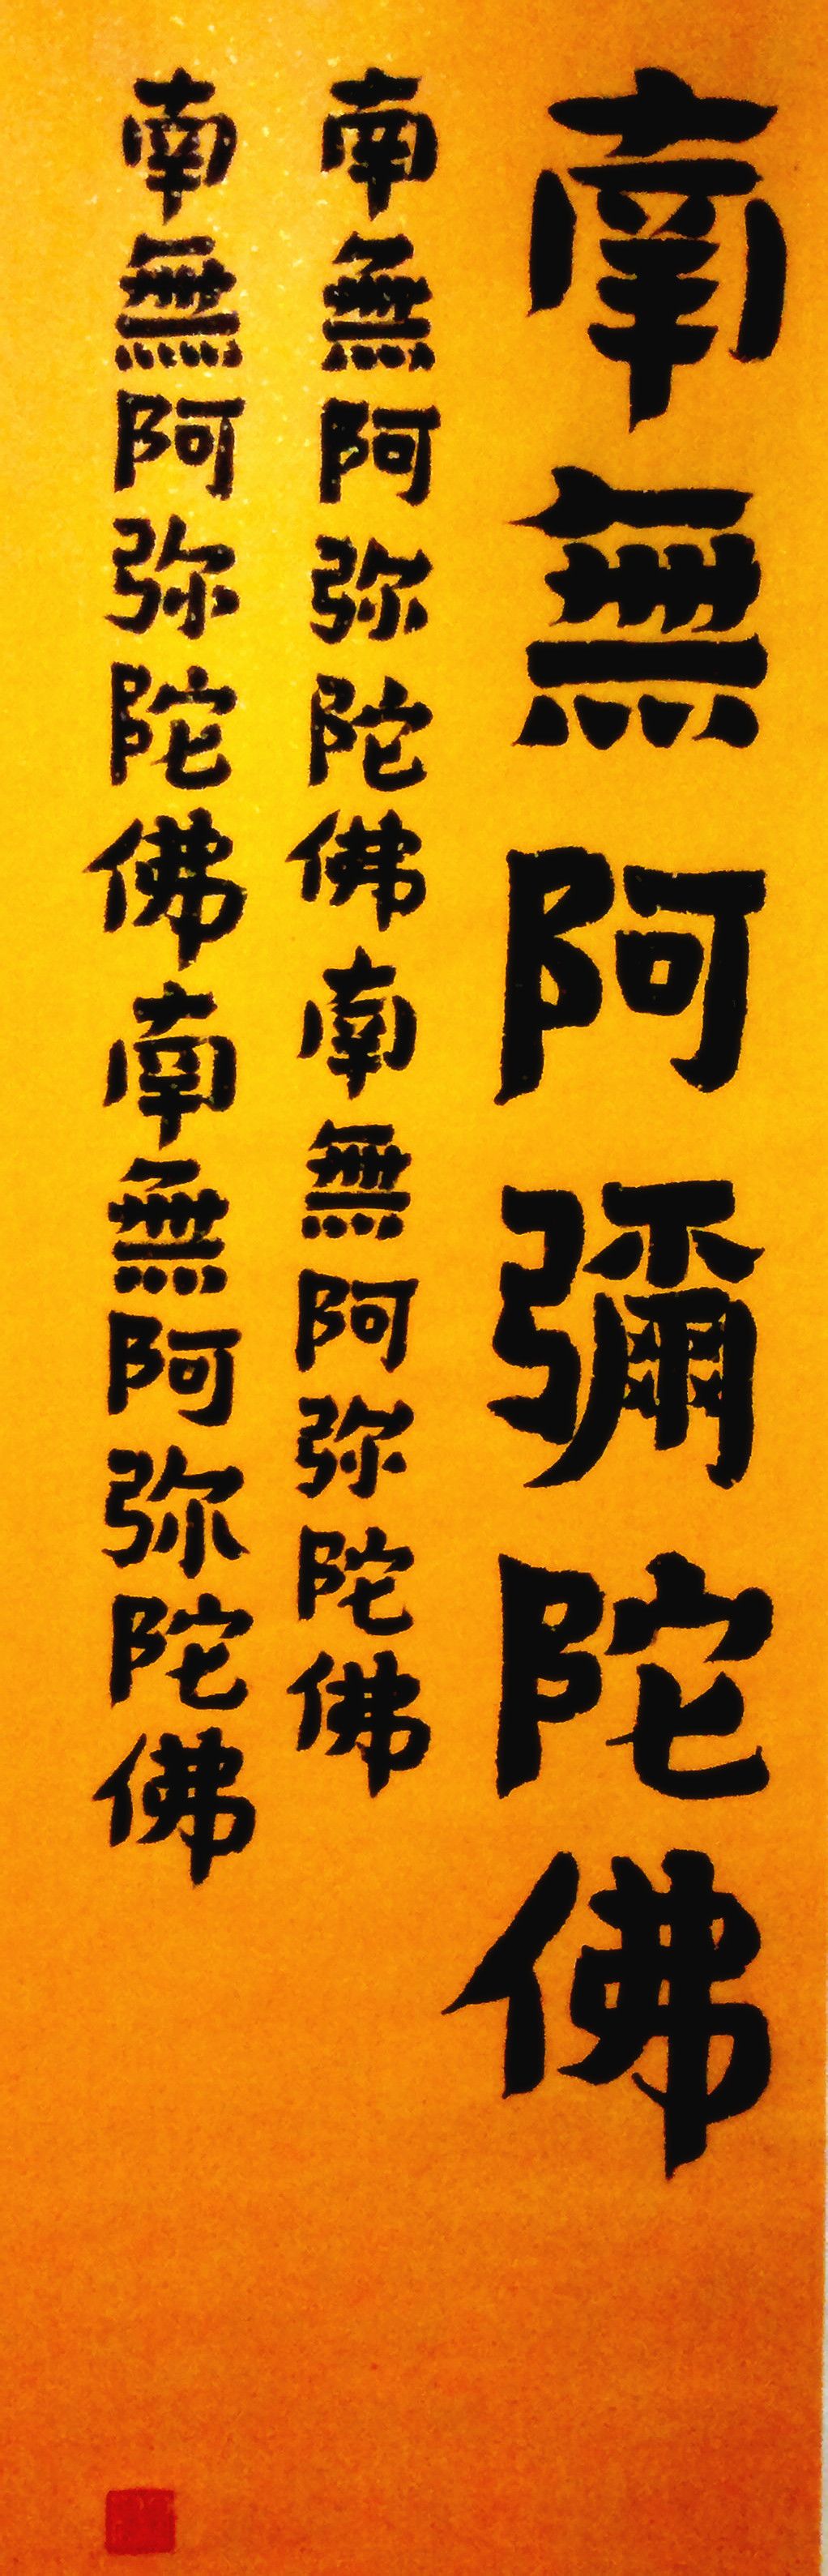 南無阿彌陀佛
南無阿弥陀佛南無阿弥陀佛
南無阿弥陀佛南無阿弥陀佛